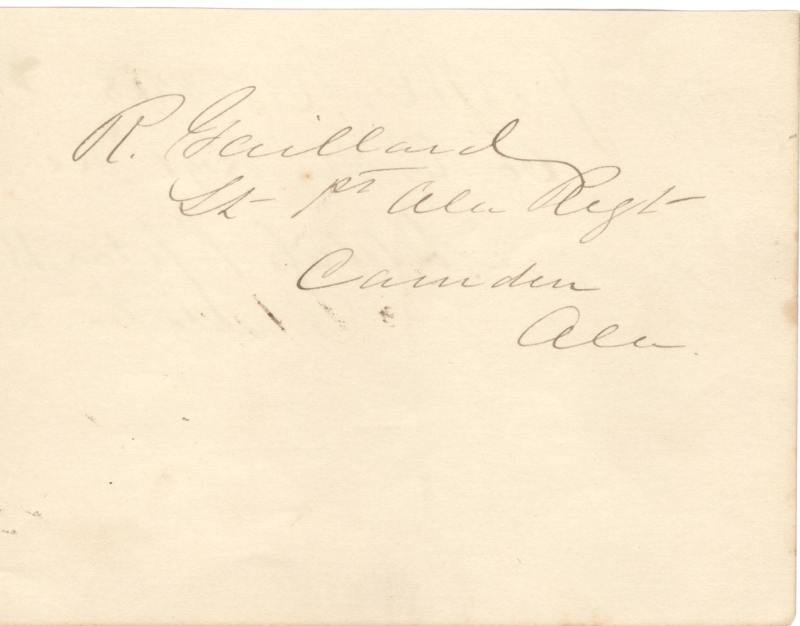 R. Gaillard
Lt 1st Ala Regt
Camden
Ala.